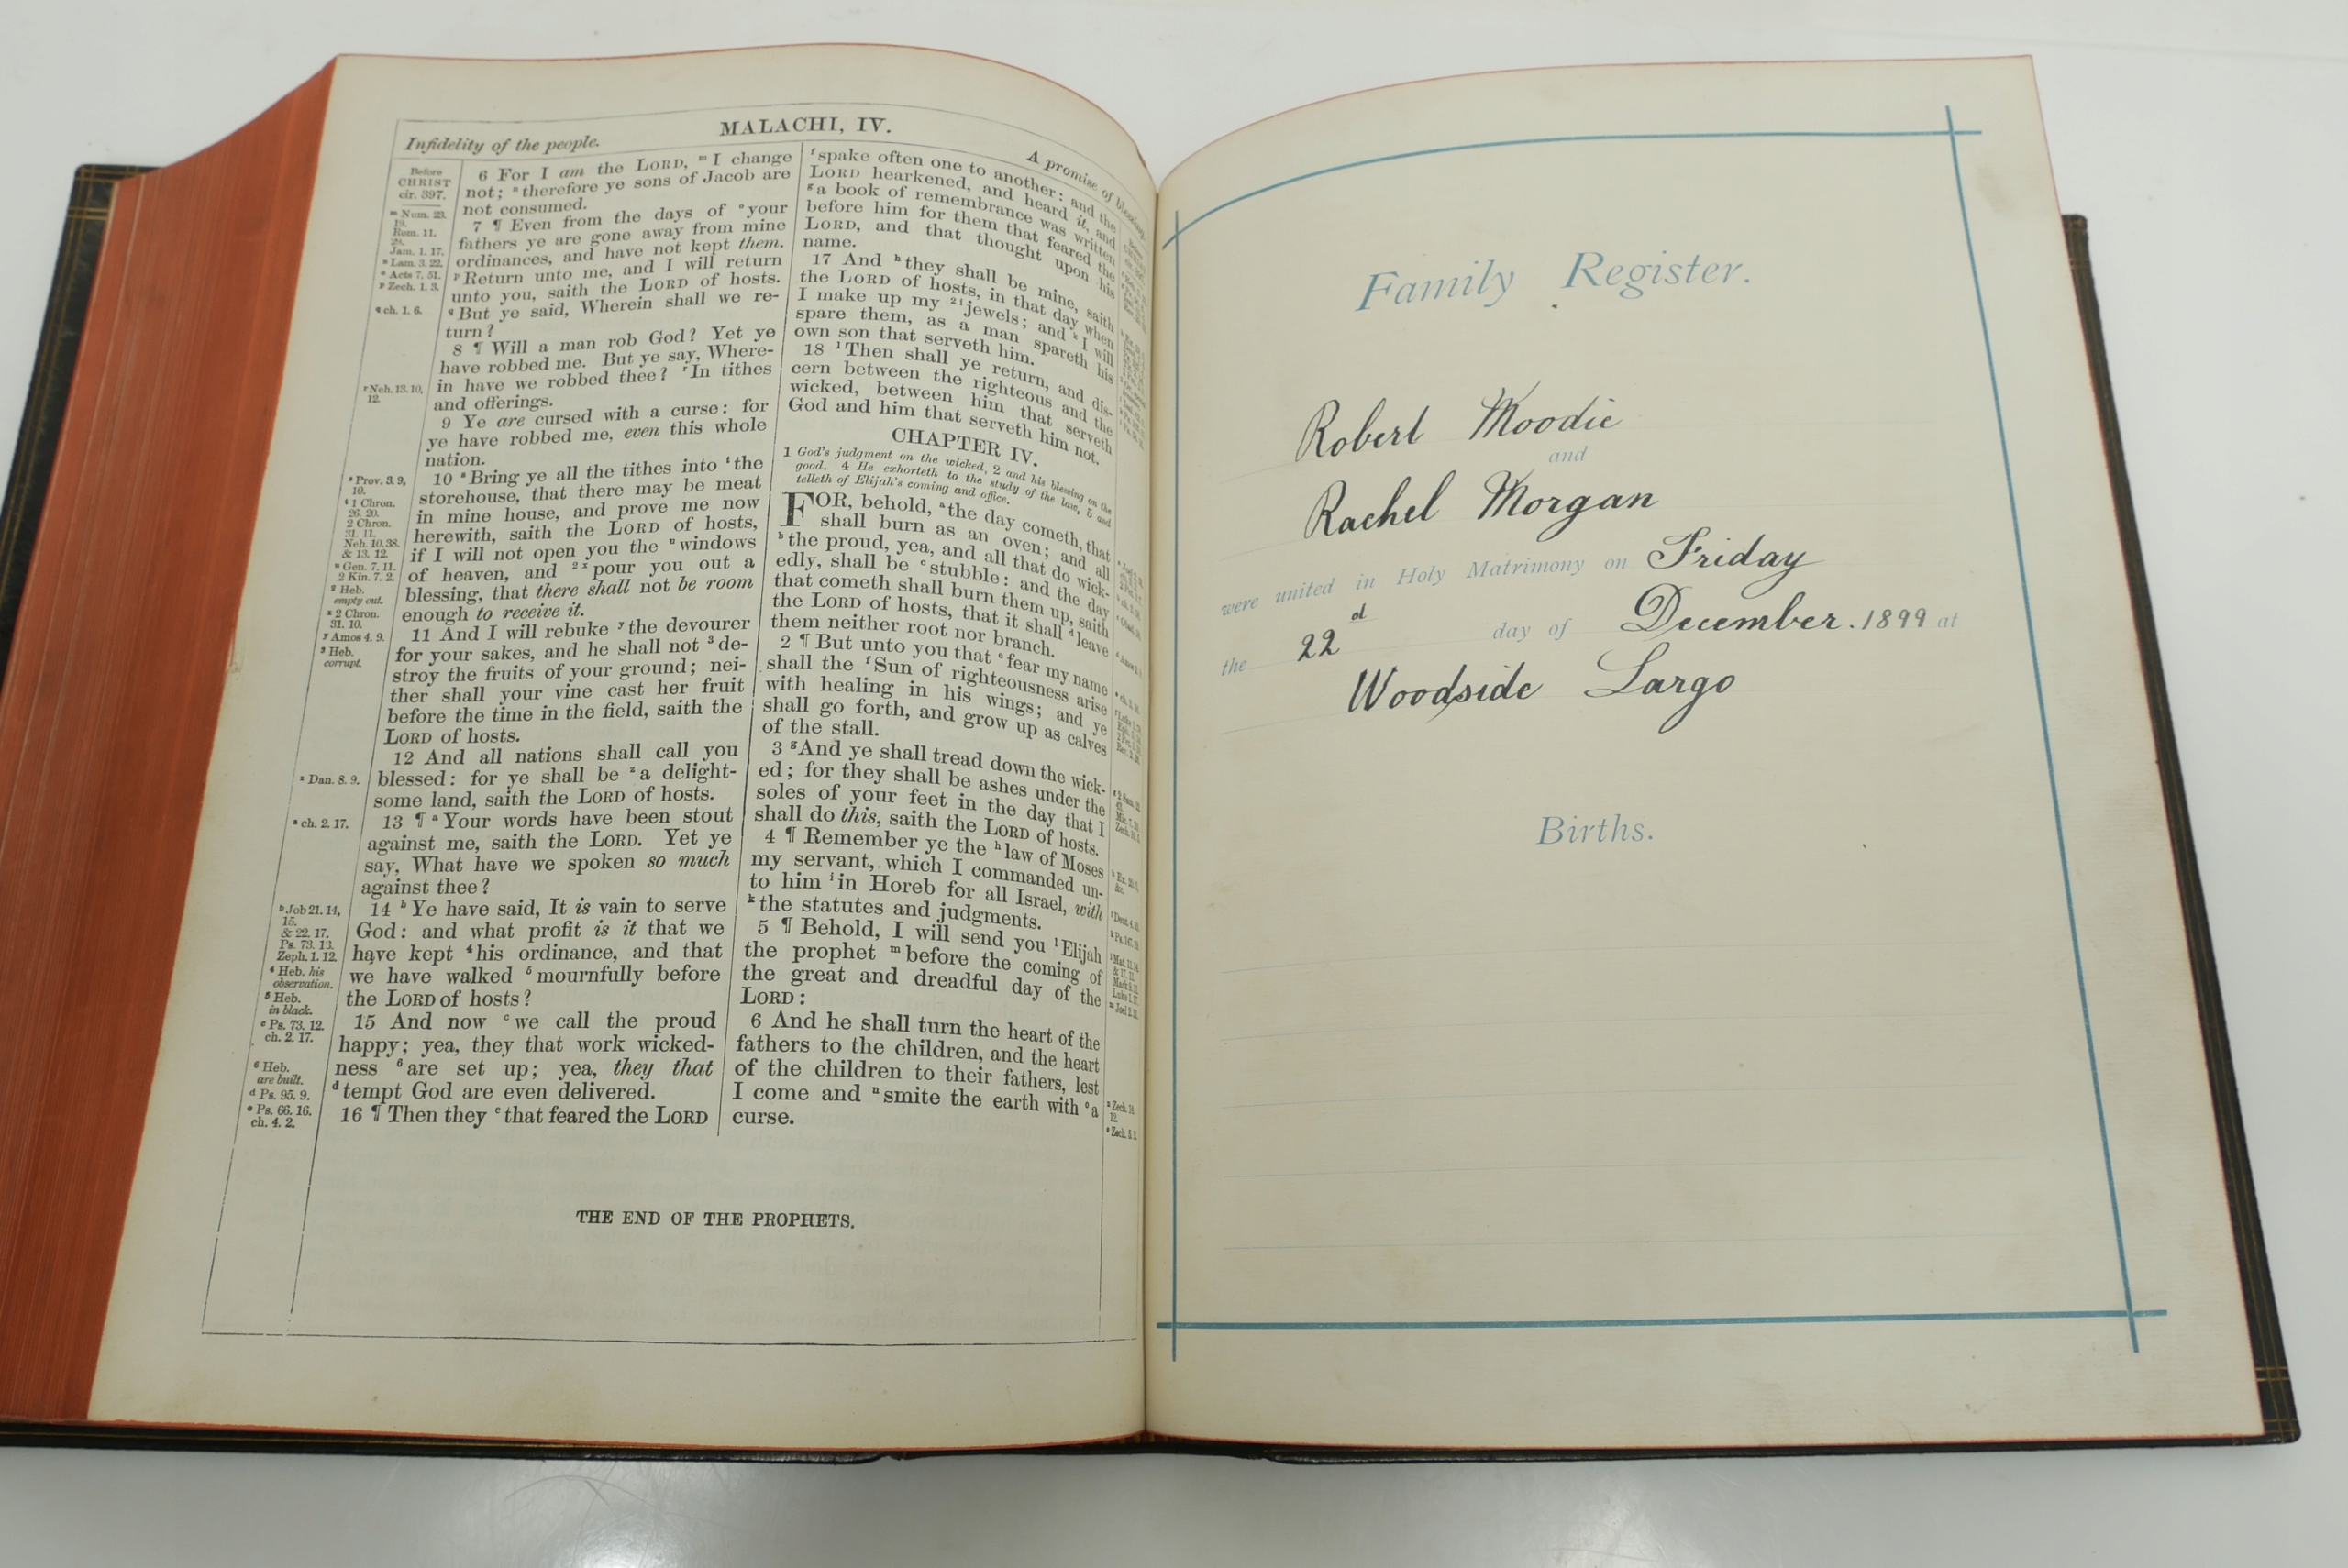 MALACHI, IV.
Infidelity of the people.
A promise of blessing.
Before
CHRIST
cir. 397.
m Num. 23.
19.
Rom. 11.
29.
Jam. 1. 17.
n Lam. 3. 22.
o Acts 7. 51.
p Zech. 1. 3.
q ch. 1. 6.
r Neh. 13. 10,
12.
s Prov. 3. 9,
10.
t 1 Chron.
26. 20.
2 Chron.
31. 11.
Neh. 10. 38.
& 13. 12.
u Gen. 7. 11.
2 Kin. 7. 2.
2 Heb.
empty out.
x 2 Chron.
31. 10.
y Amos 4. 9.
3 Heb.
corrupt.
z Dan. 8. 9.
a ch. 2. 17.
b Job 21. 14,
15.
& 22. 17.
Ps. 73. 13.
Zeph. 1. 12.
4 Heb. his
observation.
5 Heb.
in black.
c Ps. 73. 12.
ch. 2. 17.
6 Heb.
are built.
d Ps. 95. 9.
e Ps. 66. 16.
ch. 4. 2.
6 For I am the LORD, m I change
not; n therefore ye sons of Jacob are
not consumed.
7 ¶ Even from the days of o your
fathers ye are gone away from mine
ordinances, and have not kept them.
p Return unto me, and I will return
unto you, saith the LORD of hosts.
q But ye said, Wherein shall we re-
turn?
8 ¶ Will a man rob God? Yet ye
have robbed me. But ye say, Where-
in have we robbed thee? r In tithes
and offerings.
9 Ye are cursed with a curse: for
ye have robbed me, even this whole
nation.
10 s Bring ye all the tithes into t the
storehouse, that there may be meat
in mine house, and prove me now
herewith, saith the LORD of hosts,
if I will not open you the u windows
of heaven, and 2 x pour you out a
blessing, that there shall not be room
enough to receive it.
11 And I will rebuke y the devourer
for your sakes, and he shall not 3 de-
stroy the fruits of your ground; nei-
ther shall your vine cast her fruit
before the time in the field, saith the
LORD of hosts.
12 And all nations shall call you
blessed: for ye shall be z a delight-
some land, saith the LORD of hosts.
13 ¶ a Your words have been stout
against me, saith the LORD. Yet ye
say, What have we spoken so much
against thee?
14 b Ye have said, It is vain to serve
God: and what profit is it that we
have kept 4 his ordinance, and that
we have walked 5 mournfully before
the LORD of hosts?
15 And now c we call the proud
happy; yea, they that work wicked-
ness 6 are set up; yea, they that
d tempt God are even delivered.
16 ¶ Then they e that feared the LORD
f spake often one to another: and the
LORD hearkened, and heard it, and
g a book of remembrance was written
before him for them that feared the
LORD, and that thought upon his
name.
17 And h they shall be mine, saith
the LORD of hosts, in that day when
I make up my 2 i jewels; and k I will
spare them, as a man spareth his
own son that serveth him.
18 l Then shall ye return, and dis-
cern between the righteous and the
wicked, between him that serveth
God and him that serveth him not.
CHAPTER IV.
1 God's judgment on the wicked, 2 and his blessing on the
good. 4 He exhorteth to the study of the law, 5 and
telleth of Elijah's coming and office.
FOR, behold, a the day cometh, that
shall burn as an oven; and all
b the proud, yea, and all that do wick-
edly, shall be c stubble: and the day
that cometh shall burn them up, saith
the LORD of hosts, that it shall d leave
them neither root nor branch.
2 ¶ But unto you that e fear my name
shall the f Sun of righteousness arise
with healing in his wings; and ye
shall go forth, and grow up as calves
of the stall.
3 g And ye shall tread down the wick-
ed; for they shall be ashes under the
soles of your feet in the day that I
shall do this, saith the LORD of hosts.
4 ¶ Remember ye the h law of Moses
my servant, which I commanded un-
to him i in Horeb for all Israel, with
k the statutes and judgments.
5 ¶ Behold, I will send you l Elijah
the prophet m before the coming of
the great and dreadful day of the
LORD:
6 And he shall turn the heart of the
fathers to the children, and the heart
of the children to their fathers, lest
I come and n smite the earth with o a
curse.
THE END OF THE PROPHETS.
Family Register.
Robert Moodie
and
Rachel Morgan
were united in Holy Matrimony on Friday
the 22d day of December. 1899 at
Woodside Largo
Births.